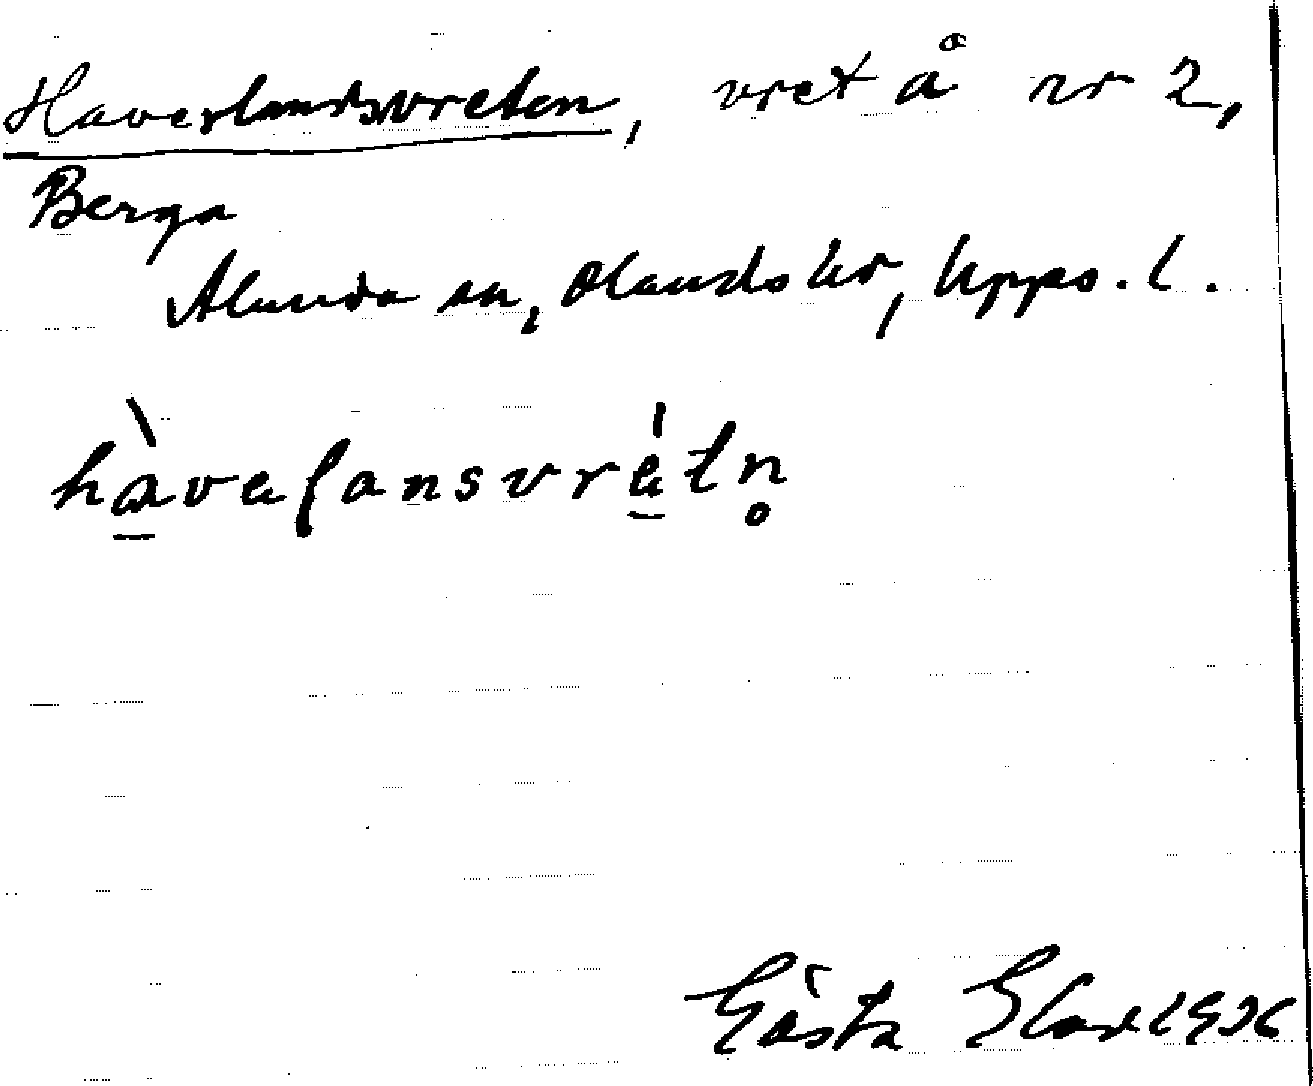 Haverlandsvreten, vret å nr 2,
Berga
Alunda sn, Olands hd, Upps. l.
hàvalansvrétn̥
Gösta